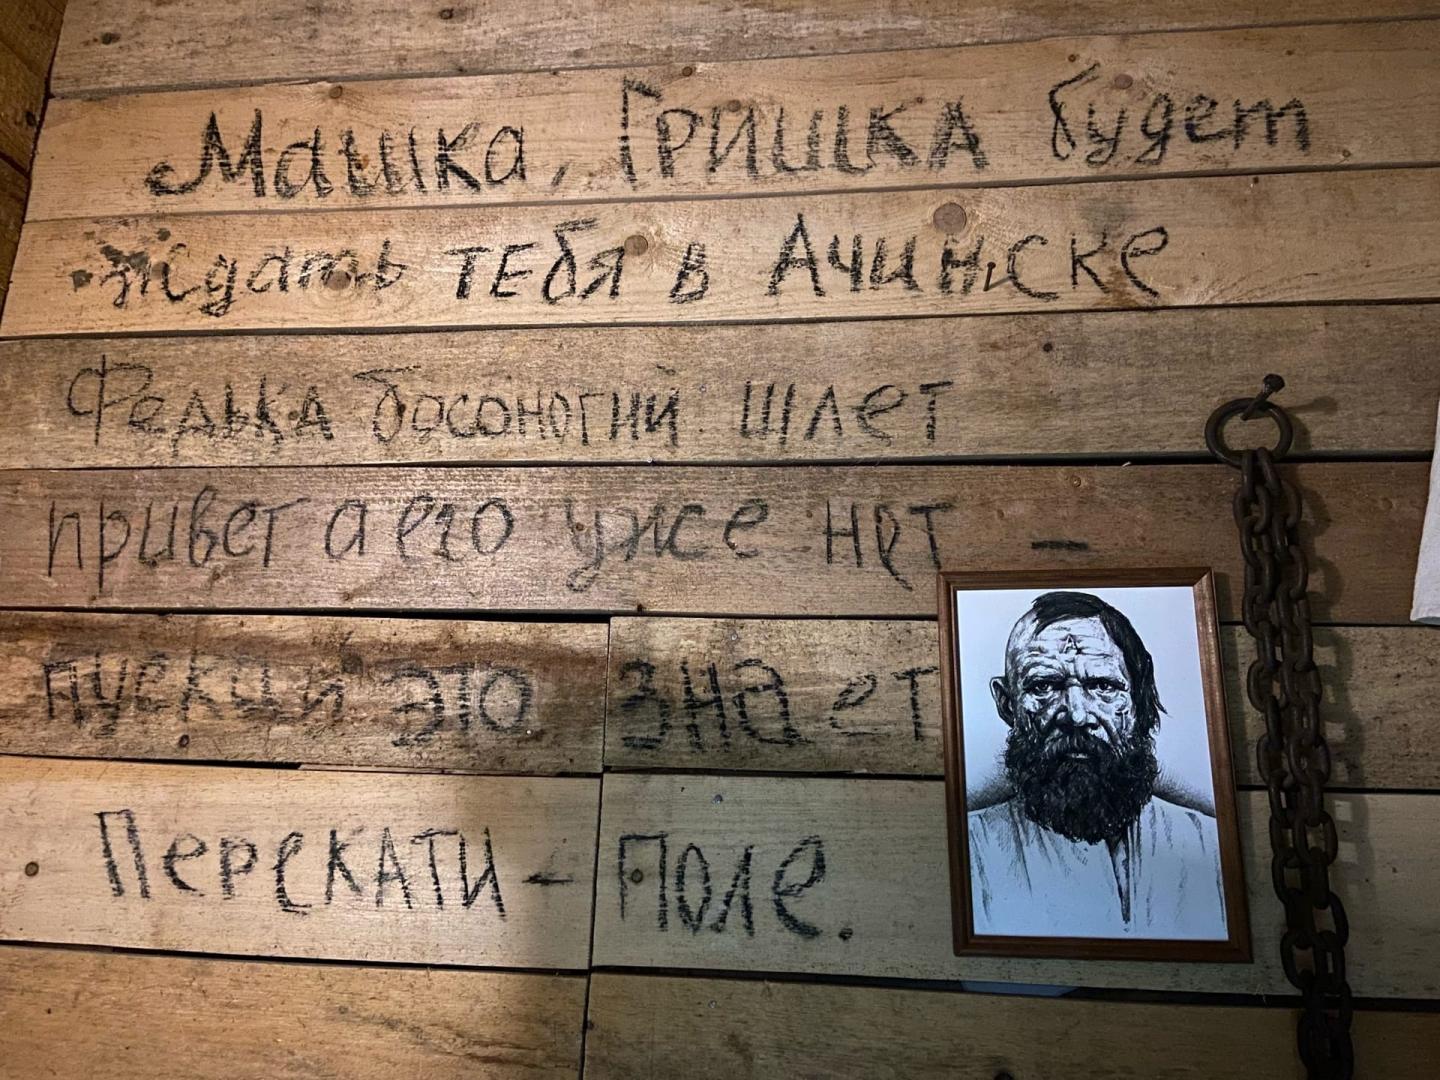 Машка, Гришка будет
ждать тебя в Ачинске
Федька босоногий шлет
привет а его уже нет –
пускай это знает
Перекати – Поле.
А